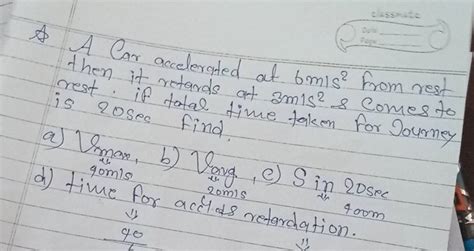 classmate
Date
Page
A Car accelerated at 6m/s² from rest
then it retards at 3m/s² & comes to
rest. if total time taken for Journey
is 20sec find.
a) Vmax, b) Vavg, c) S in 20sec
40m/s 20m/s 400m
d) time for acc &
retardation.
40